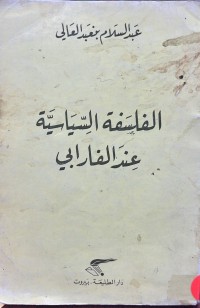 عبد السلام بنعبد العالي
الفلسفة السياسية
عند الفارابي
دار الطليعة - بيروت